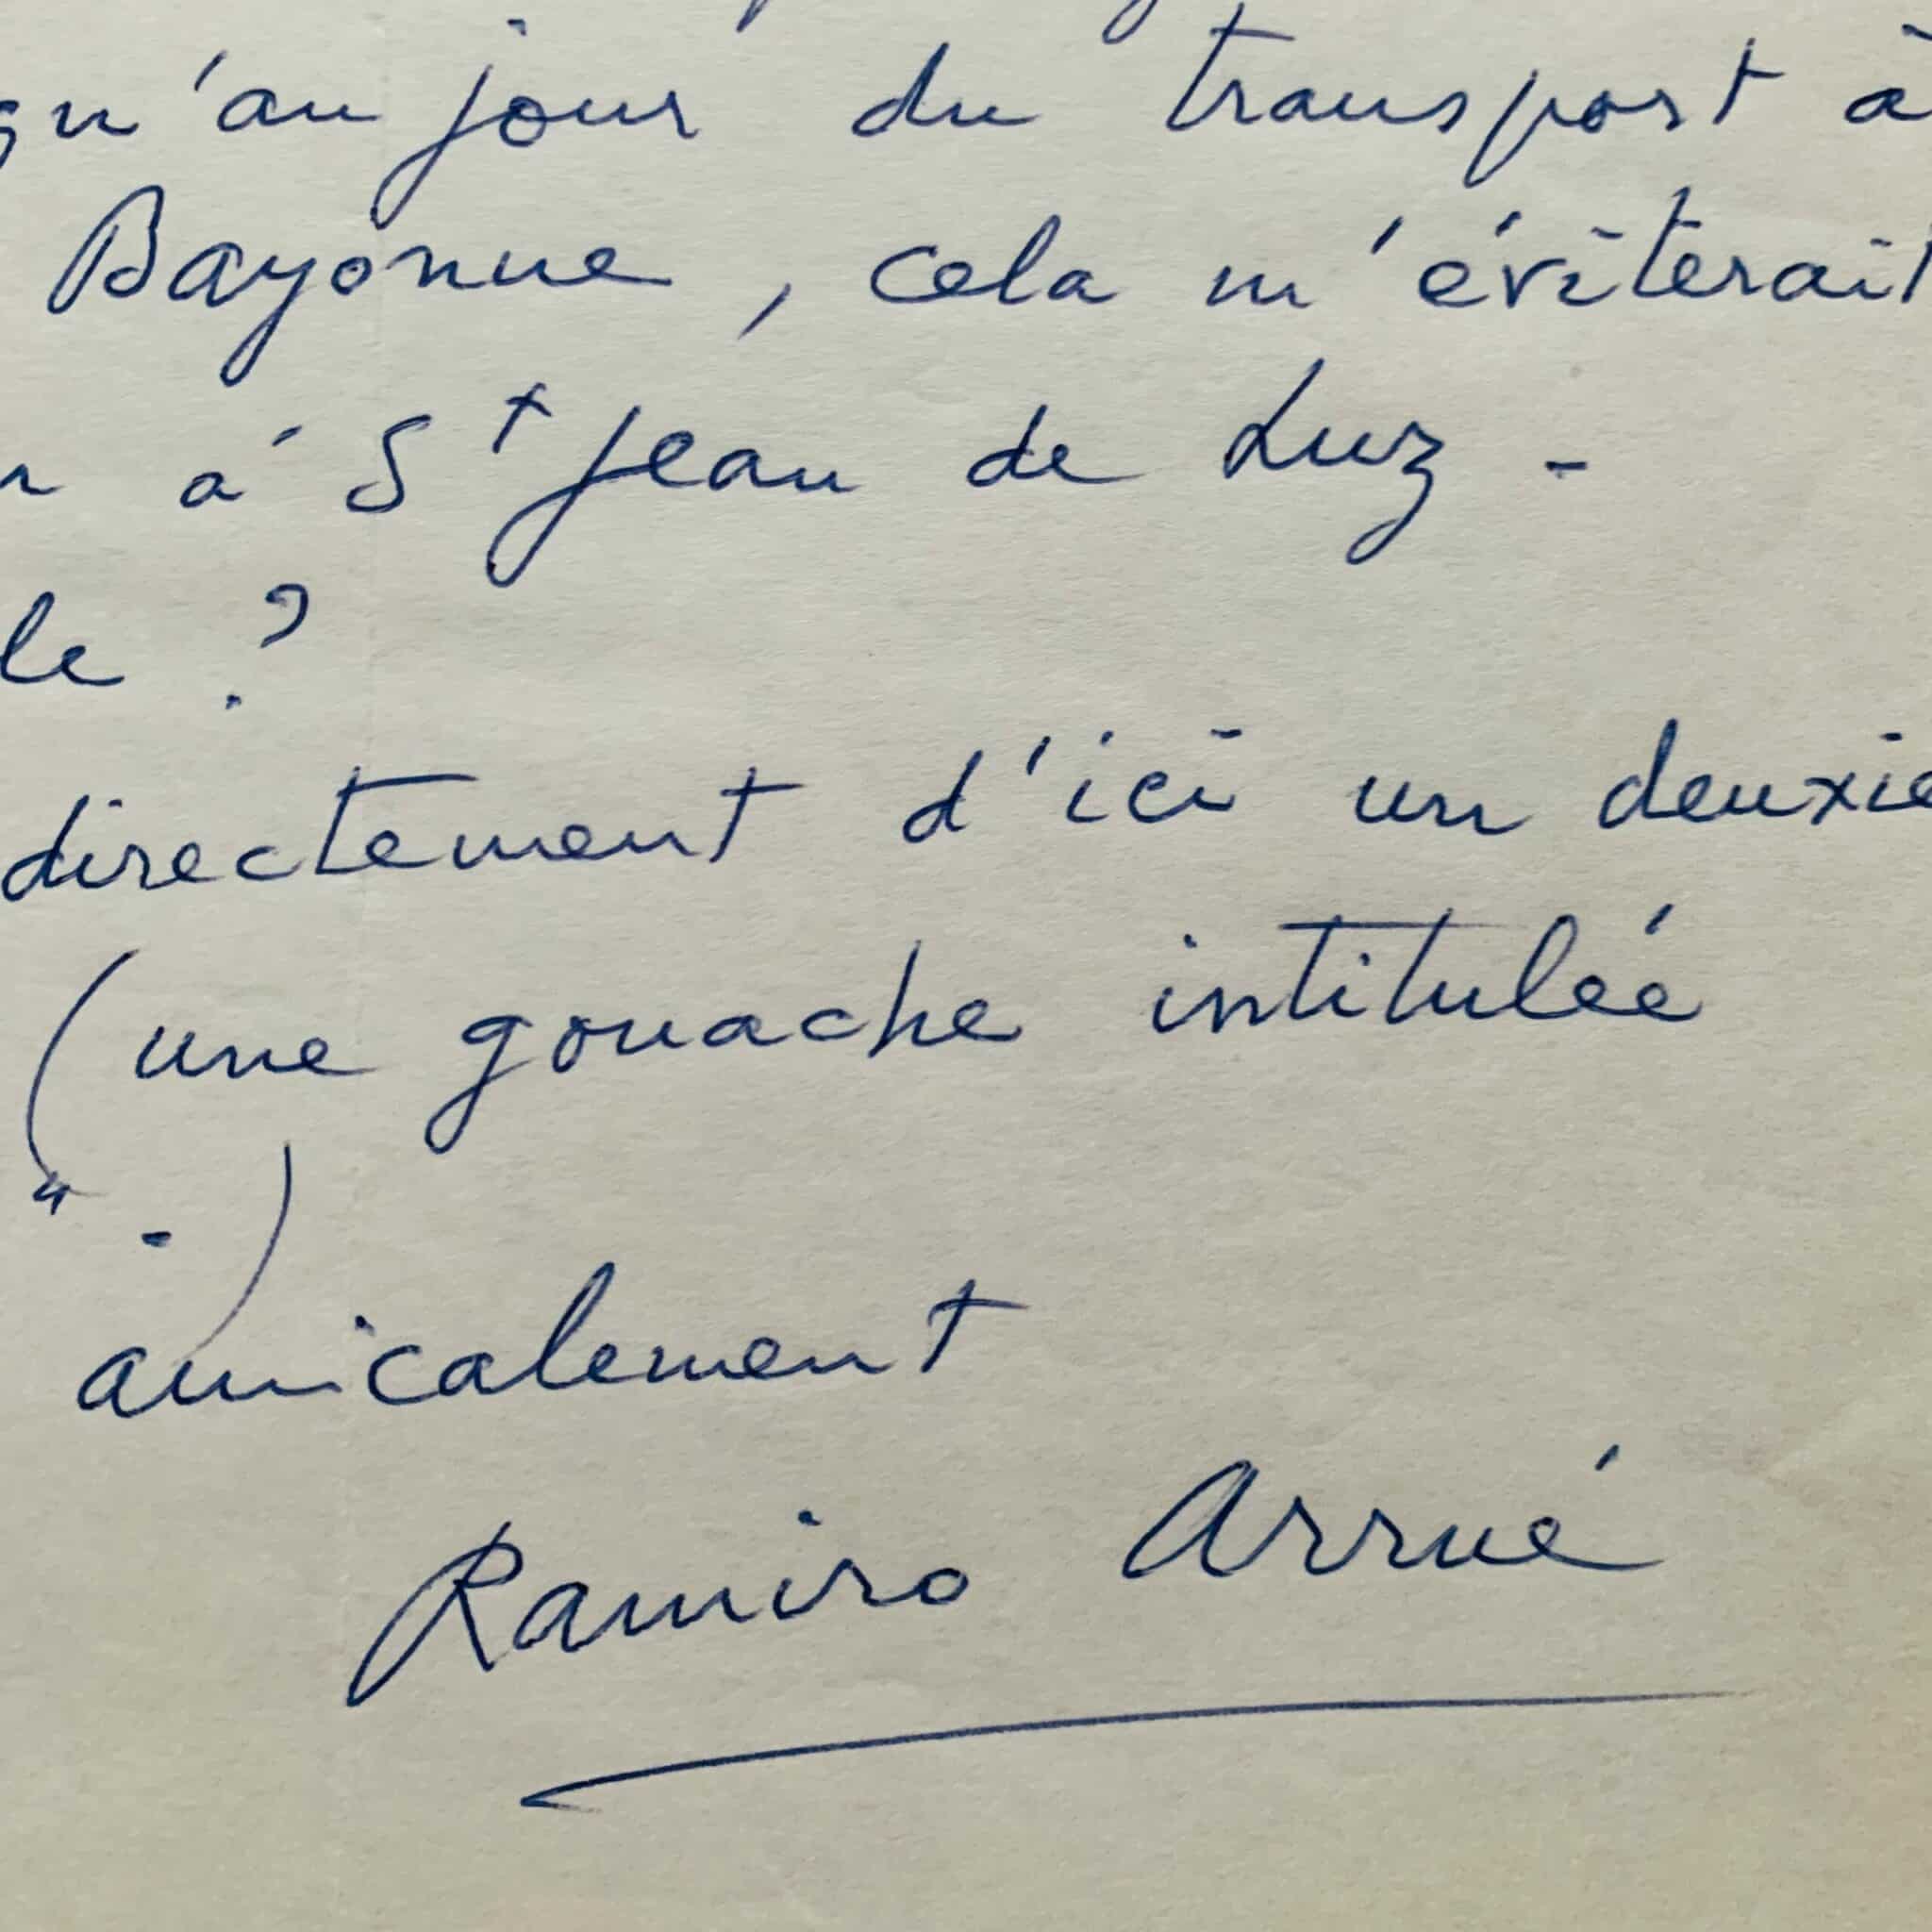 qu'au jour du transport à
Bayonne, cela m'éviterait
à St Jean de Luz -
le ?
directement d'ici un deuxiè
(une gouache intitulée
" - )
amicalement
Ramiro Arrué